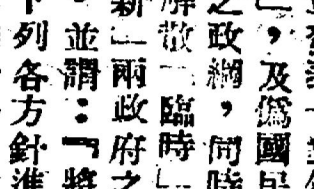 」，及僞國民
之政綱，同時
解散「臨時」
新」兩政府之
並謂：『將
列各方針進